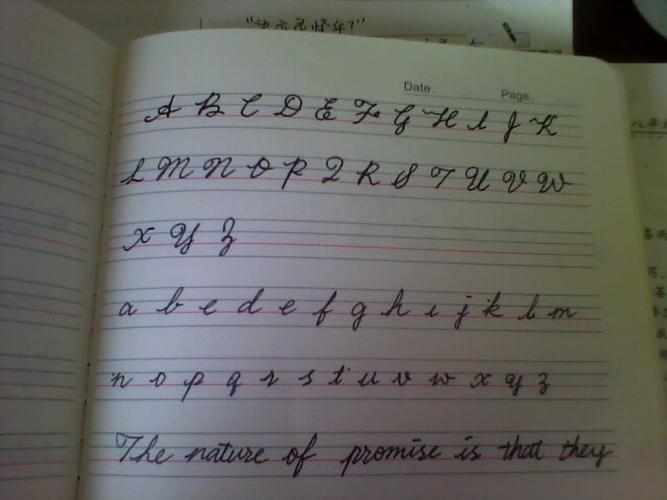 Date. Page.
A B C D E F G H I J K
L M N O P Q R S T U V W
X Y Z
a b c d e f g h i j k l m
n o p q r s t u v w x y z
The nature of promise is that they